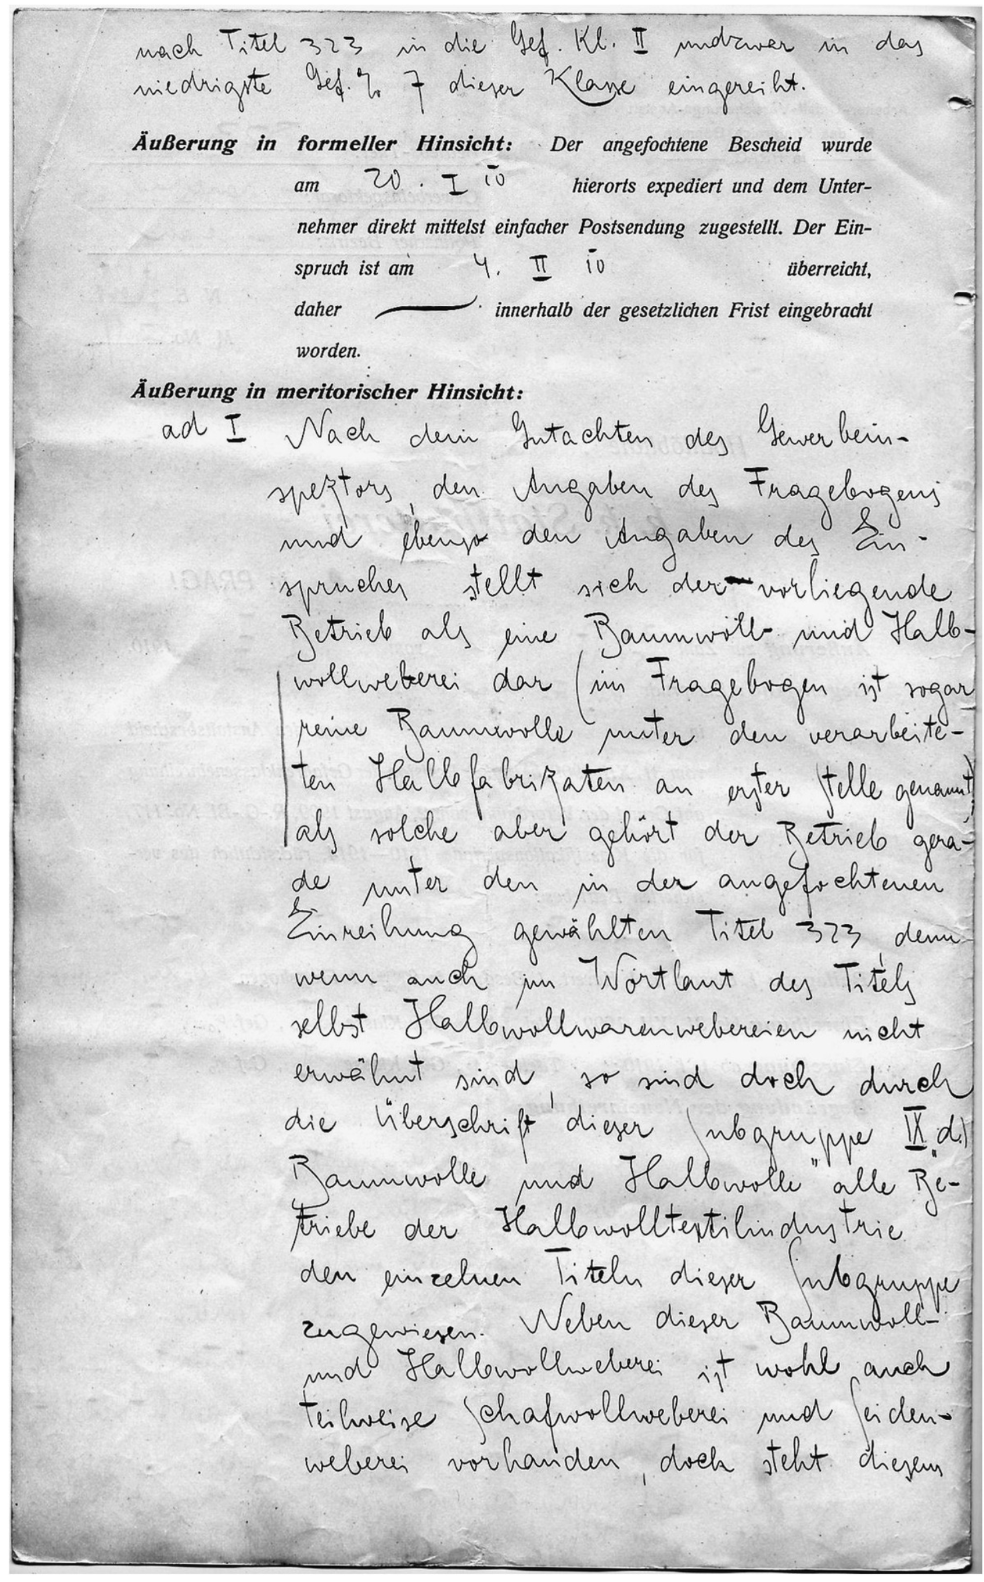 nach Titel 323 in die Gef. Kl. II undzwar in das
niedrigste Gef. % 7 dieser Klasse eingereiht.
Äußerung in formeller Hinsicht: Der angefochtene Bescheid wurde
am 20. I 10 hierorts expediert und dem Unter-
nehmer direkt mittelst einfacher Postsendung zugestellt. Der Ein-
spruch ist am 4. II 10 überreicht,
daher innerhalb der gesetzlichen Frist eingebracht
worden.
Äußerung in meritorischer Hinsicht:
ad I Nach dem Gutachten des Gewerbein-
spektors, den Angaben des Fragebogens
und ebenso den Angaben des Ein-
spruches stellt sich der vorliegende
Betrieb als eine Baumwoll- und Halb-
wollweberei dar (im Fragebogen ist sogar
reine Baumwolle unter den verarbeite-
ten Halbfabrikaten an erster Stelle genannt)
als solche aber gehört der Betrieb gera-
de unter den in der angefochtenen
Einreihung gewählten Titel 323, denn
wenn auch im Wortlaut des Titels
selbst Halbwollwarenwebereien nicht
erwähnt sind, so sind doch durch
die Überschrift dieser Subgruppe IX d.)
„Baumwolle und Halbwolle" alle Be-
triebe der Halbwolltextilindustrie
den einzelnen Titeln dieser Subgruppe
zugewiesen. Neben dieser Baumwoll-
und Halbwollweberei ist wohl auch
teilweise Schafwollweberei und Seiden-
weberei vorhanden, doch steht diesem